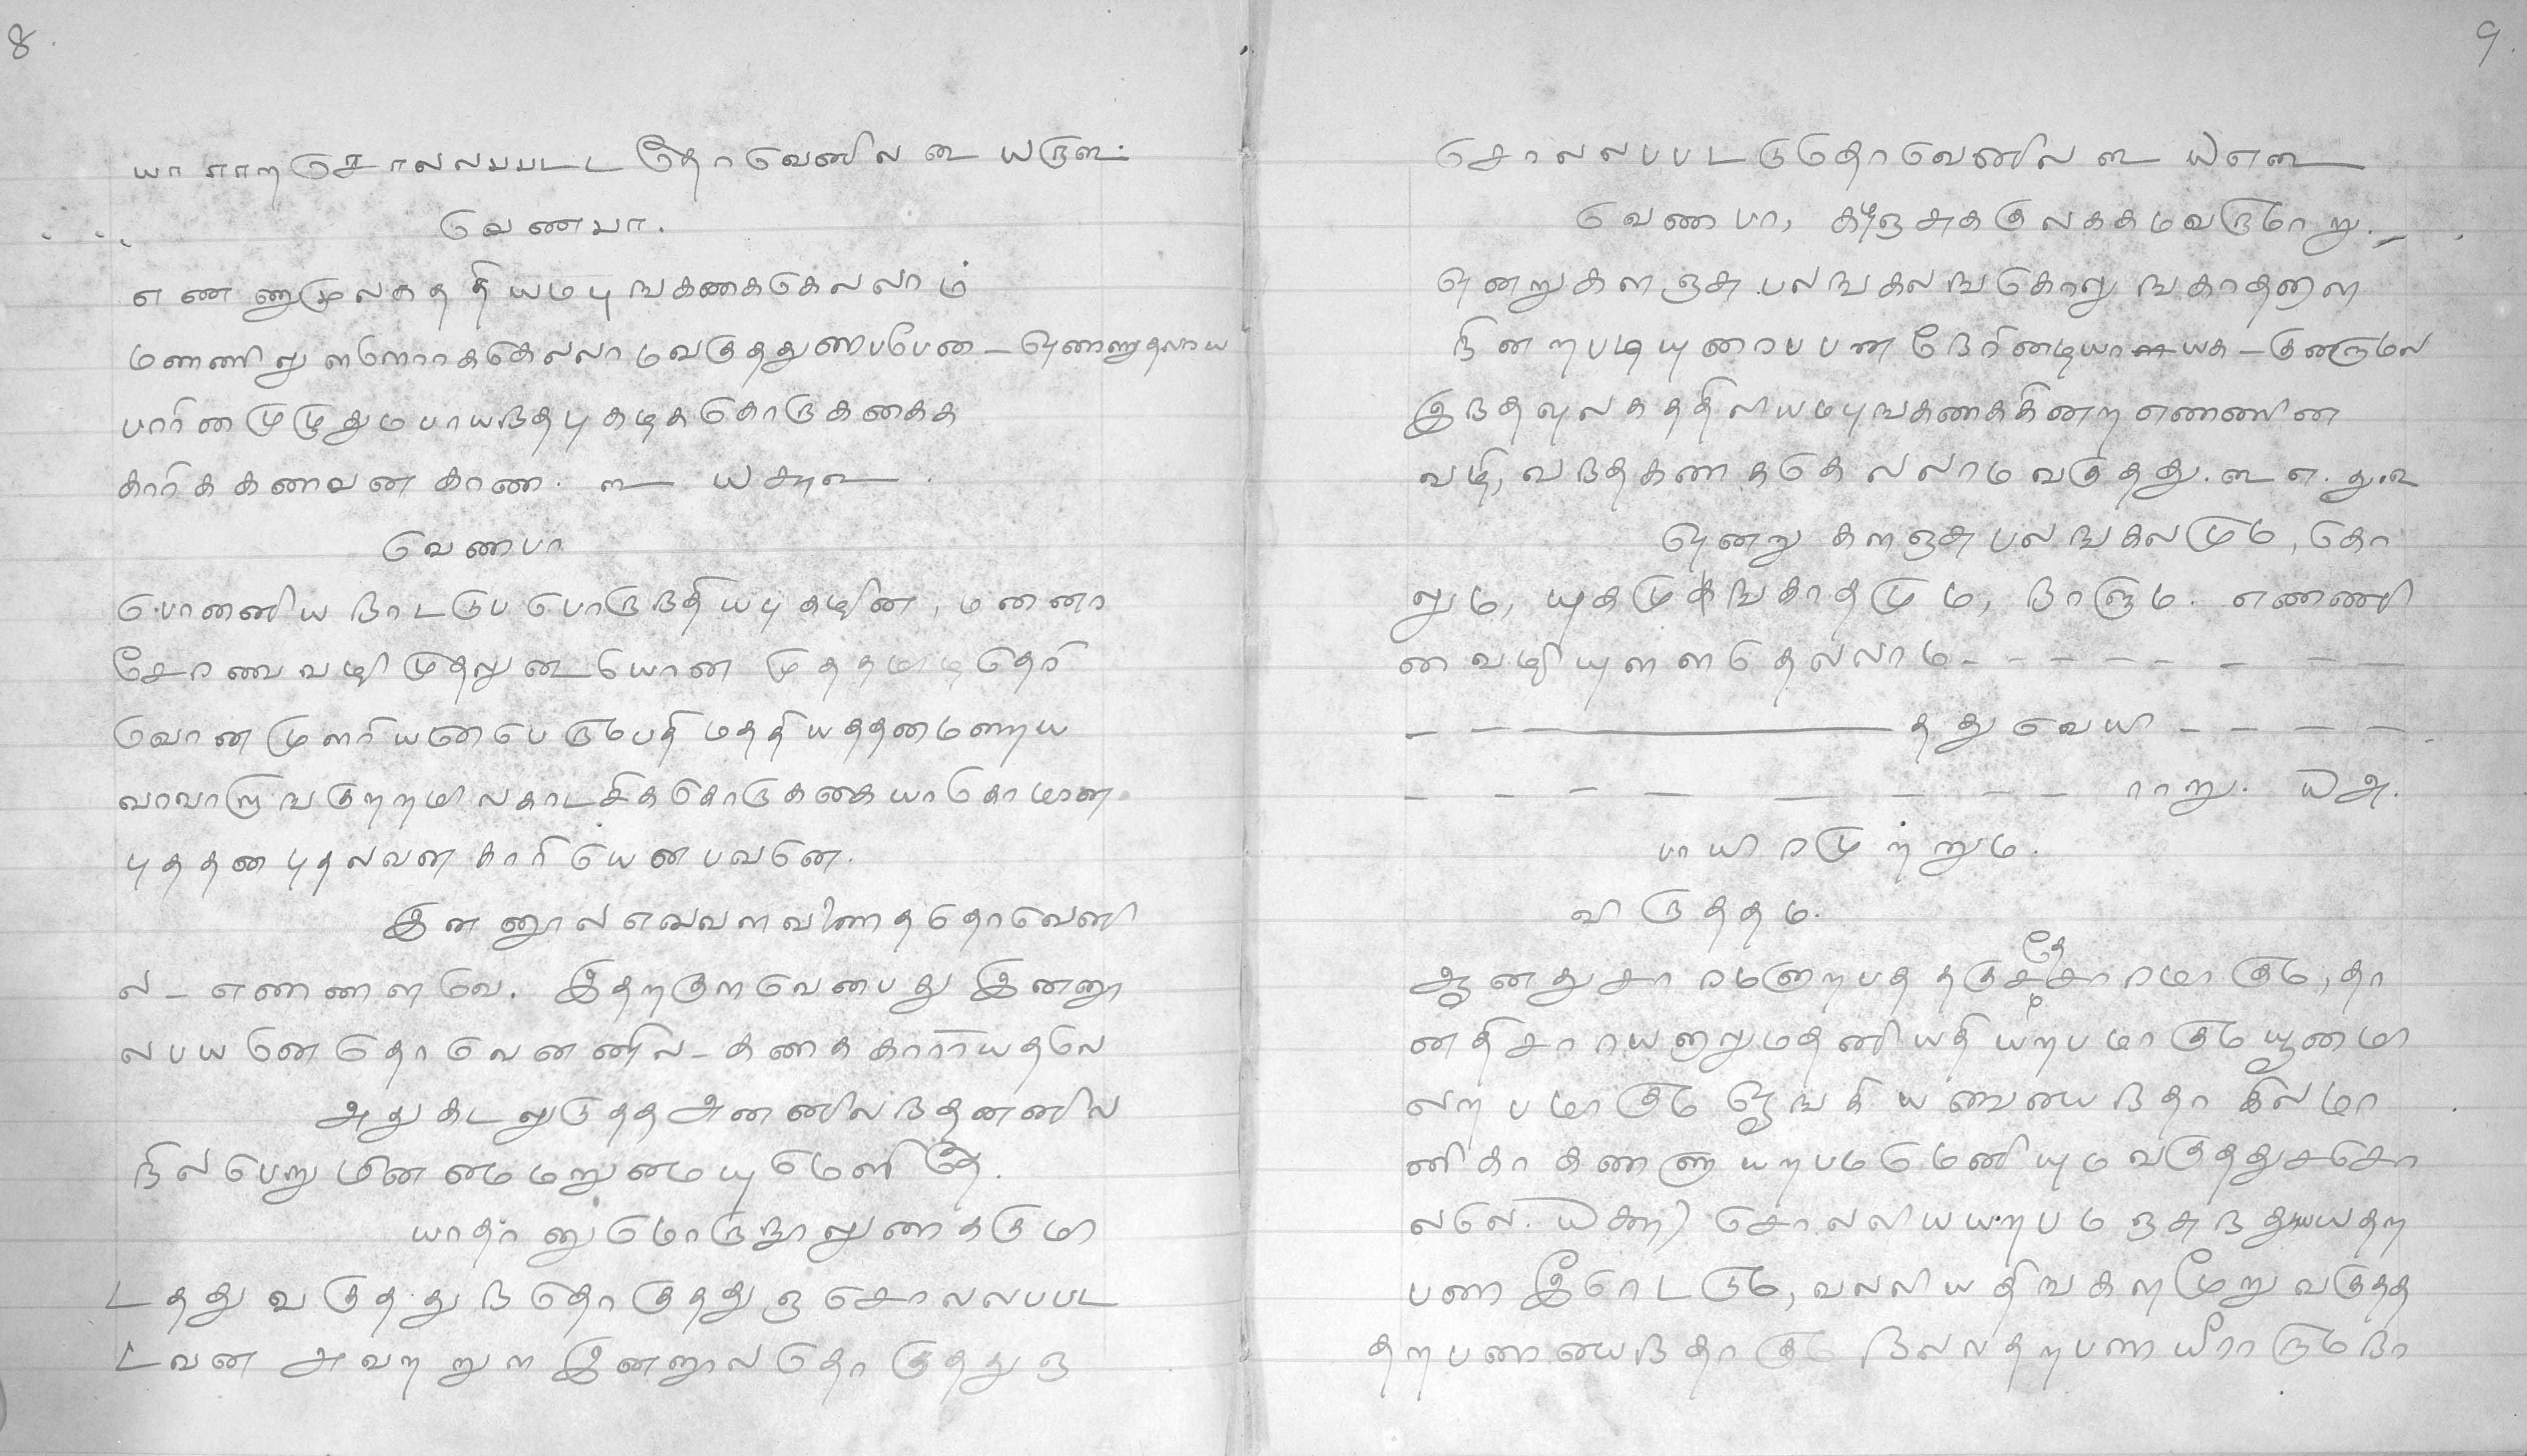 8.
யாராறசொலலபபடடதோவெனில உ யரு௨.
வெணபா.
எணணுமுலகத தியமபுஙகணககெலலாம்
மணணிலுளளோரககெலலாமவகுததுணபபேன _ ஒணணுதலாய
பாரினமுழுதுமபாயநதபுகழககொருககைக
காரிககணவனகாண. உ யசு௨
வெணபா
பொனனிய நாடடுபபொருநதியபுகழின, மனனா
சோணவவழிமுதலுடையோன முததமழதெரி
வோனமுளரியனைபெருமபதிமததியததனமைறைய
வாவாறுஙகுறறமிலகாடசிககொருககையாகொமான
புததனபுதலவனகாரியெனபவனே.
இனனூலஎவவளவிணதததோவெனி
ல _ எணணளவே. இதறகுறவெனபது இனனூ
லபயனெதொவெனனில _ கணககாராயதலே
அதுகடலுடுததஅனனிலநதனனில
நிலபெறுமினமைமறுமையுமெளிதே.
யாதானுமொருநூலுணககுமி
டதது வகுதது நதொகுதது ஞ சொலலபபட
டவன அவறறுள இனநூல தொகுதது ஞ
9.
சொலலபபடடுதொவெனில உ யஎ௨
வெணபா, கழஞசுககுலககமவருமாறு. _
ஒனறுகளஞசு பலஙகலஙகொலுஙகாதளை
நினறபடியுணாபபன நேரிழையாயக _ குனறாமல
இநதவுலகததிலியமபுஙகணககினறஎணணின
வழி, வநதகணககெலலாமவகுதது. உ எ. து.உ
ஒனறு களஞசுபலஙகலமும, கொ
லும, யுகமுஙகாதமும, நாளும. எணணி
னவழியுளளதெலலாம _ _ _ _ _ _ _ _
_ _ _ தது வெயி _ _ _ _
_ _ _ _ _ _ _ _ ராறு. யஅ.
பாயிரமுற்றும.
விருததம.
ஆனதுசாரமனறபததகுசசேசாரமாகும, தா
னதிசாராயனறுமதனியதியறபமாகுமயூனமி
லறபமாகும ஓஙகியவையைநதாகிலமா
னிகாகணணாயறபமமெனியுமவகுததுசசொ
லலே. யகூ) சொலலியயறபமஞசுநதுயயதற
பணாஇரொடடும, வலலியதிஙகளமூறுவகுதத
தறபணாயைநதாகும நிலலதறபணாயீராரும நா